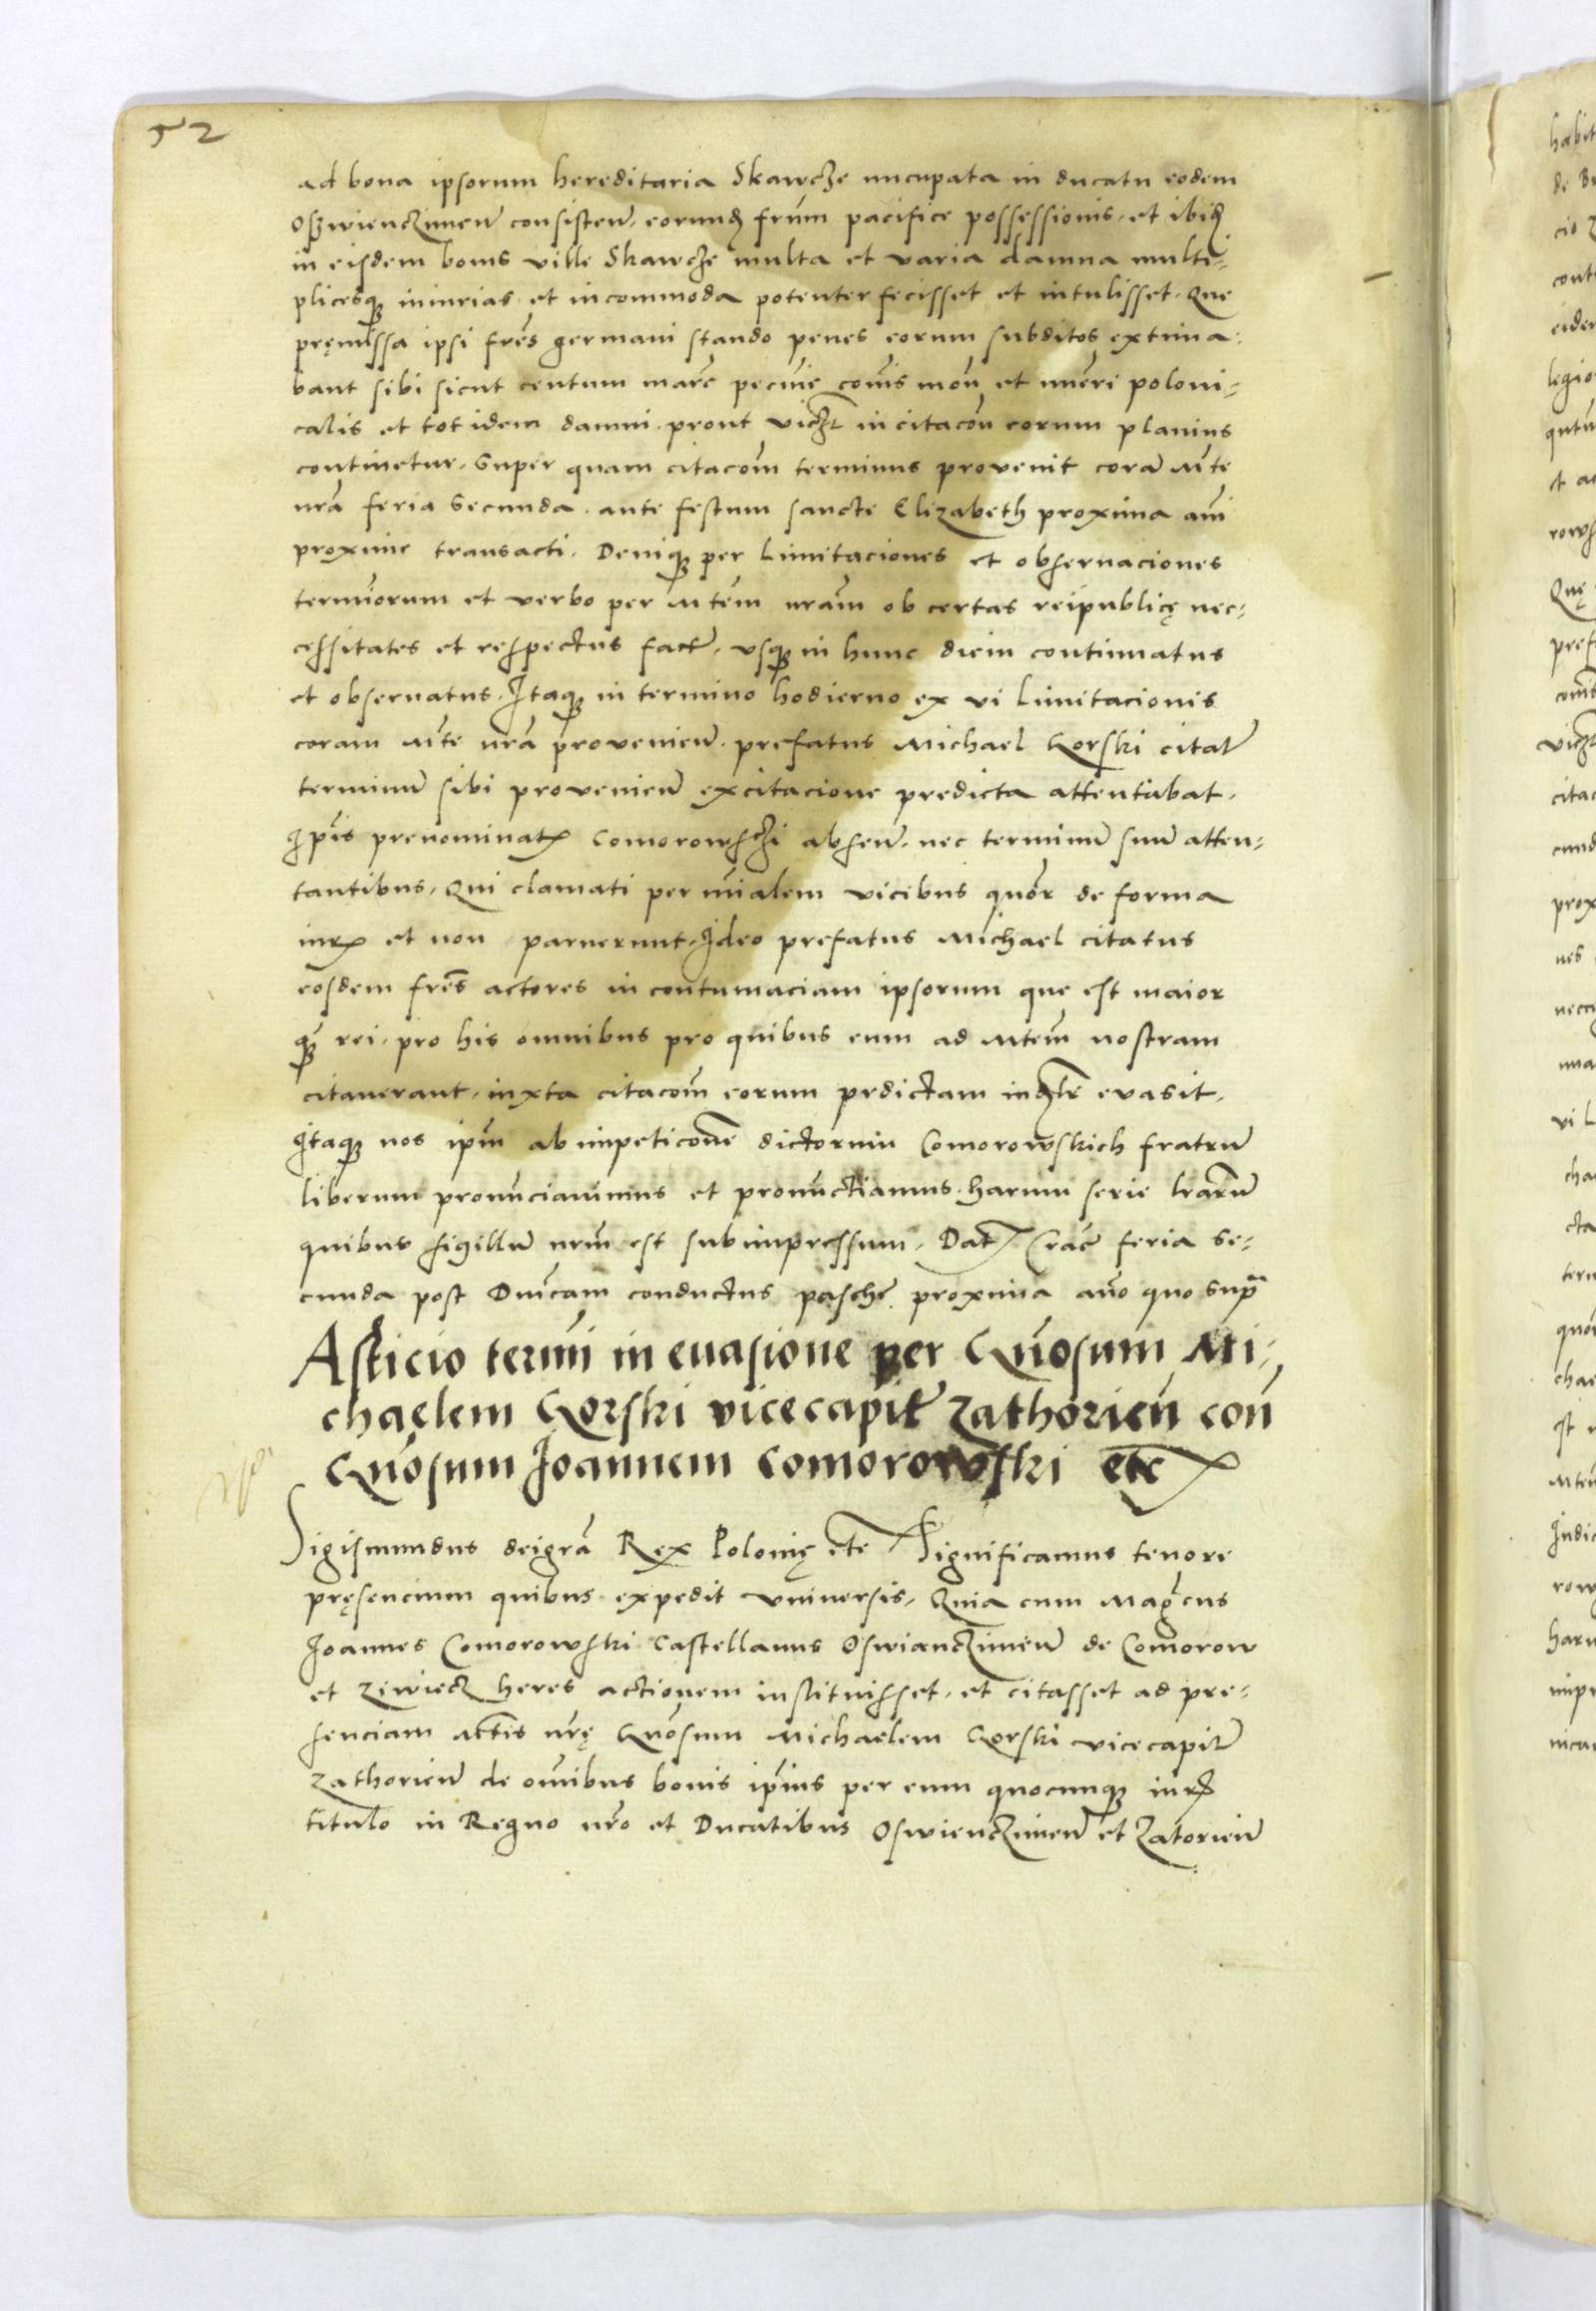 52
ad bona ipsorum hereditaria Skawcze nucupata in ducatu eodem
Oszwienczimen̄ consisten̄. eorund frūm pacifice possęssionis. et ibid
in eisdem bonis ville Skawcze multa et varia damna multi-
plicesq iniurias et incommoda potenter fecisset et intulisset. Que
pręmissa ipsi frēs germani stando penes eorum subditos extima-
bant sibi sicut centum marc̄ pecunie com̄is mon̄ et nūeri poloni-
calis et tot idem damni. prout vidꝫlt in citacōn eorum planius
continetur. Super quam citacōm terminus provenit corā Mte
nrā feria Secunda ante festum sancte Elizabeth proxima an̄i
proxime transacti. Deniq per Limitaciones et obseruaciones
termīorum et verbo per Mtem nram̄ ob certas reipublicę nec-
cessitates et respectus fact̄. usq in hunc diem continuatus
et obseruatus. Itaq in termino hodierno ex vi Limitacionis
coram Mte nrā provenien̄. prefatus Michael Gorski citat̄
terminū sibi provenien̄ ex citacione predicta attentabat.
Ip̄is prenominatꝫ Comorowschi absen̄. nec terminū suū atten-
tantibus. Qui clamati per mīalem vicibus quōr de forma
iurꝫ et non paruerunt. Ideo prefatus Michael citatus
eosdem frēs actores in contumaciam ipsorum que est maior
q̄ rei. pro his omnibus pro quibus eum ad Mtem̄ nostram
citauerant. iuxta citacōm eorum prdictam evasit.
Itaq nos ip̄m ab impeticōne dictorum Comorowskich fratrū
liberum pronūciauimus et pronūctiamus. harum serie lr̄arū
quibus sigillū nrm̄ est subimpressum. Datꝫ Crac̄ feria Se-
cunda post Dnīcam conductus paschę proxima an̄o quo supra
Asticio termīi in euasione per Gn̄osum Mi-
chaelem Gorski vicecapit̄ Zathorien̄ con̄
Gn̄osum Joannem Comorowski etc
Sigismundus dei grā Rex Polonię etc Significamus tenore
pręsencium quibus expedit vniuersis. Quia cum Maḡcus
Joannes Comorowski Castellanus Oswianczimen̄ de Comorow
et Ziwiecz heres actionem instituisset. et citasset ad pre-
senciam Mtis nrę Gn̄osum Michaelem Gorski vicecapit̄
Zathorien̄ de om̄ibus bonis ip̄ius per eum quocunq iurꝫ
titulo in Regno nrō et Ducatibus Oswienczimen̄ et Zatorien̄